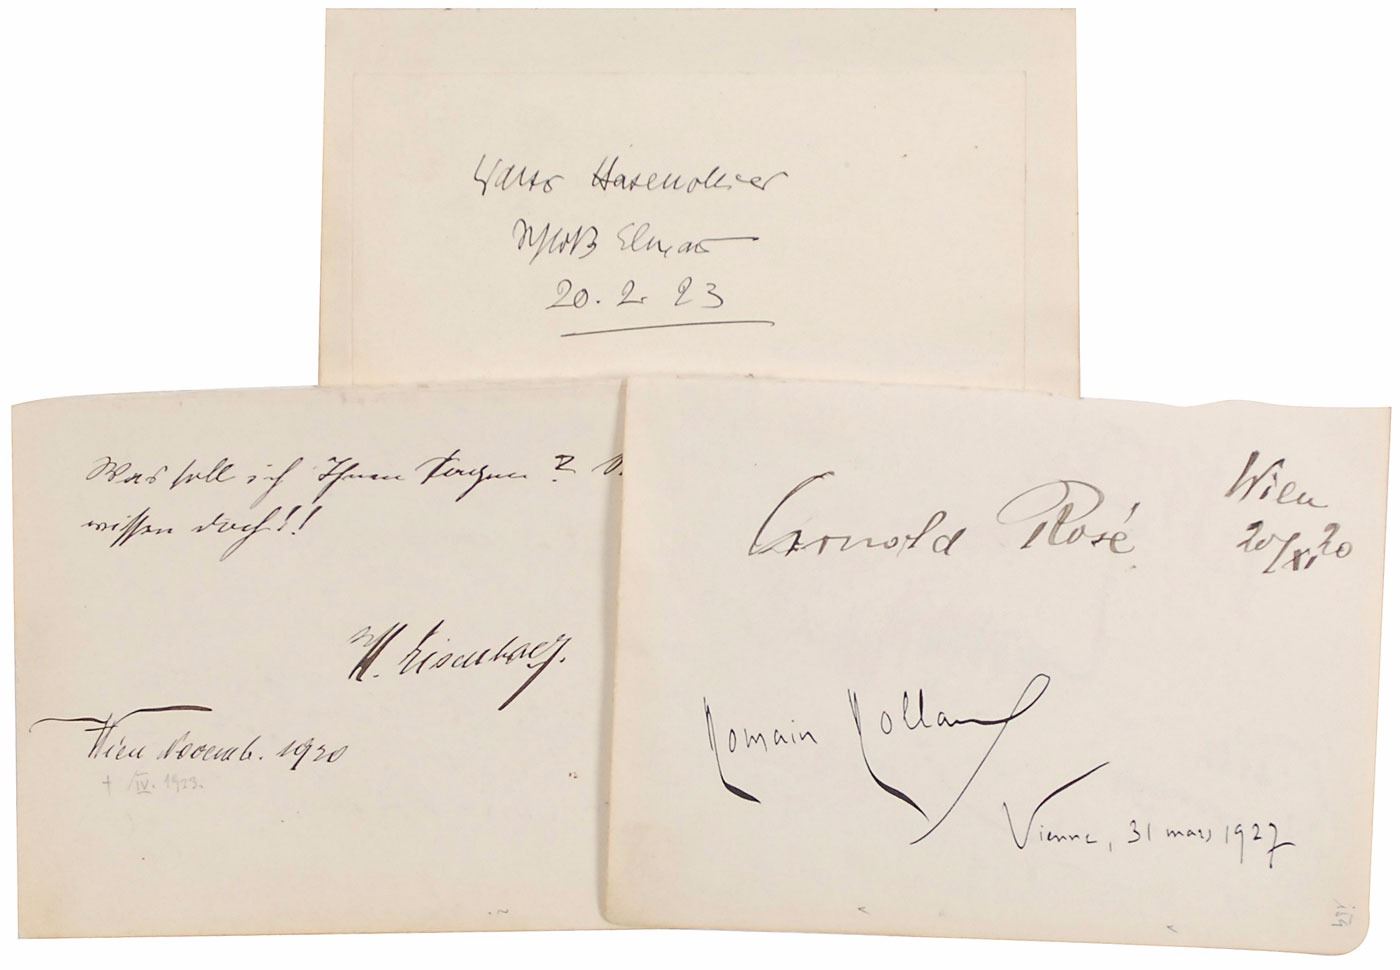 Walter Hasenclever
Schloß Elmau
20. 2. 23
Was soll ich Ihnen sagen?
wissen doch!!
H. Eisenbach.
Wien Novemb. 1920
† IV. 1923.
Arnold Rosé
Wien
20/XI.20
Romain Rolland
Vienne, 31 mars 1927